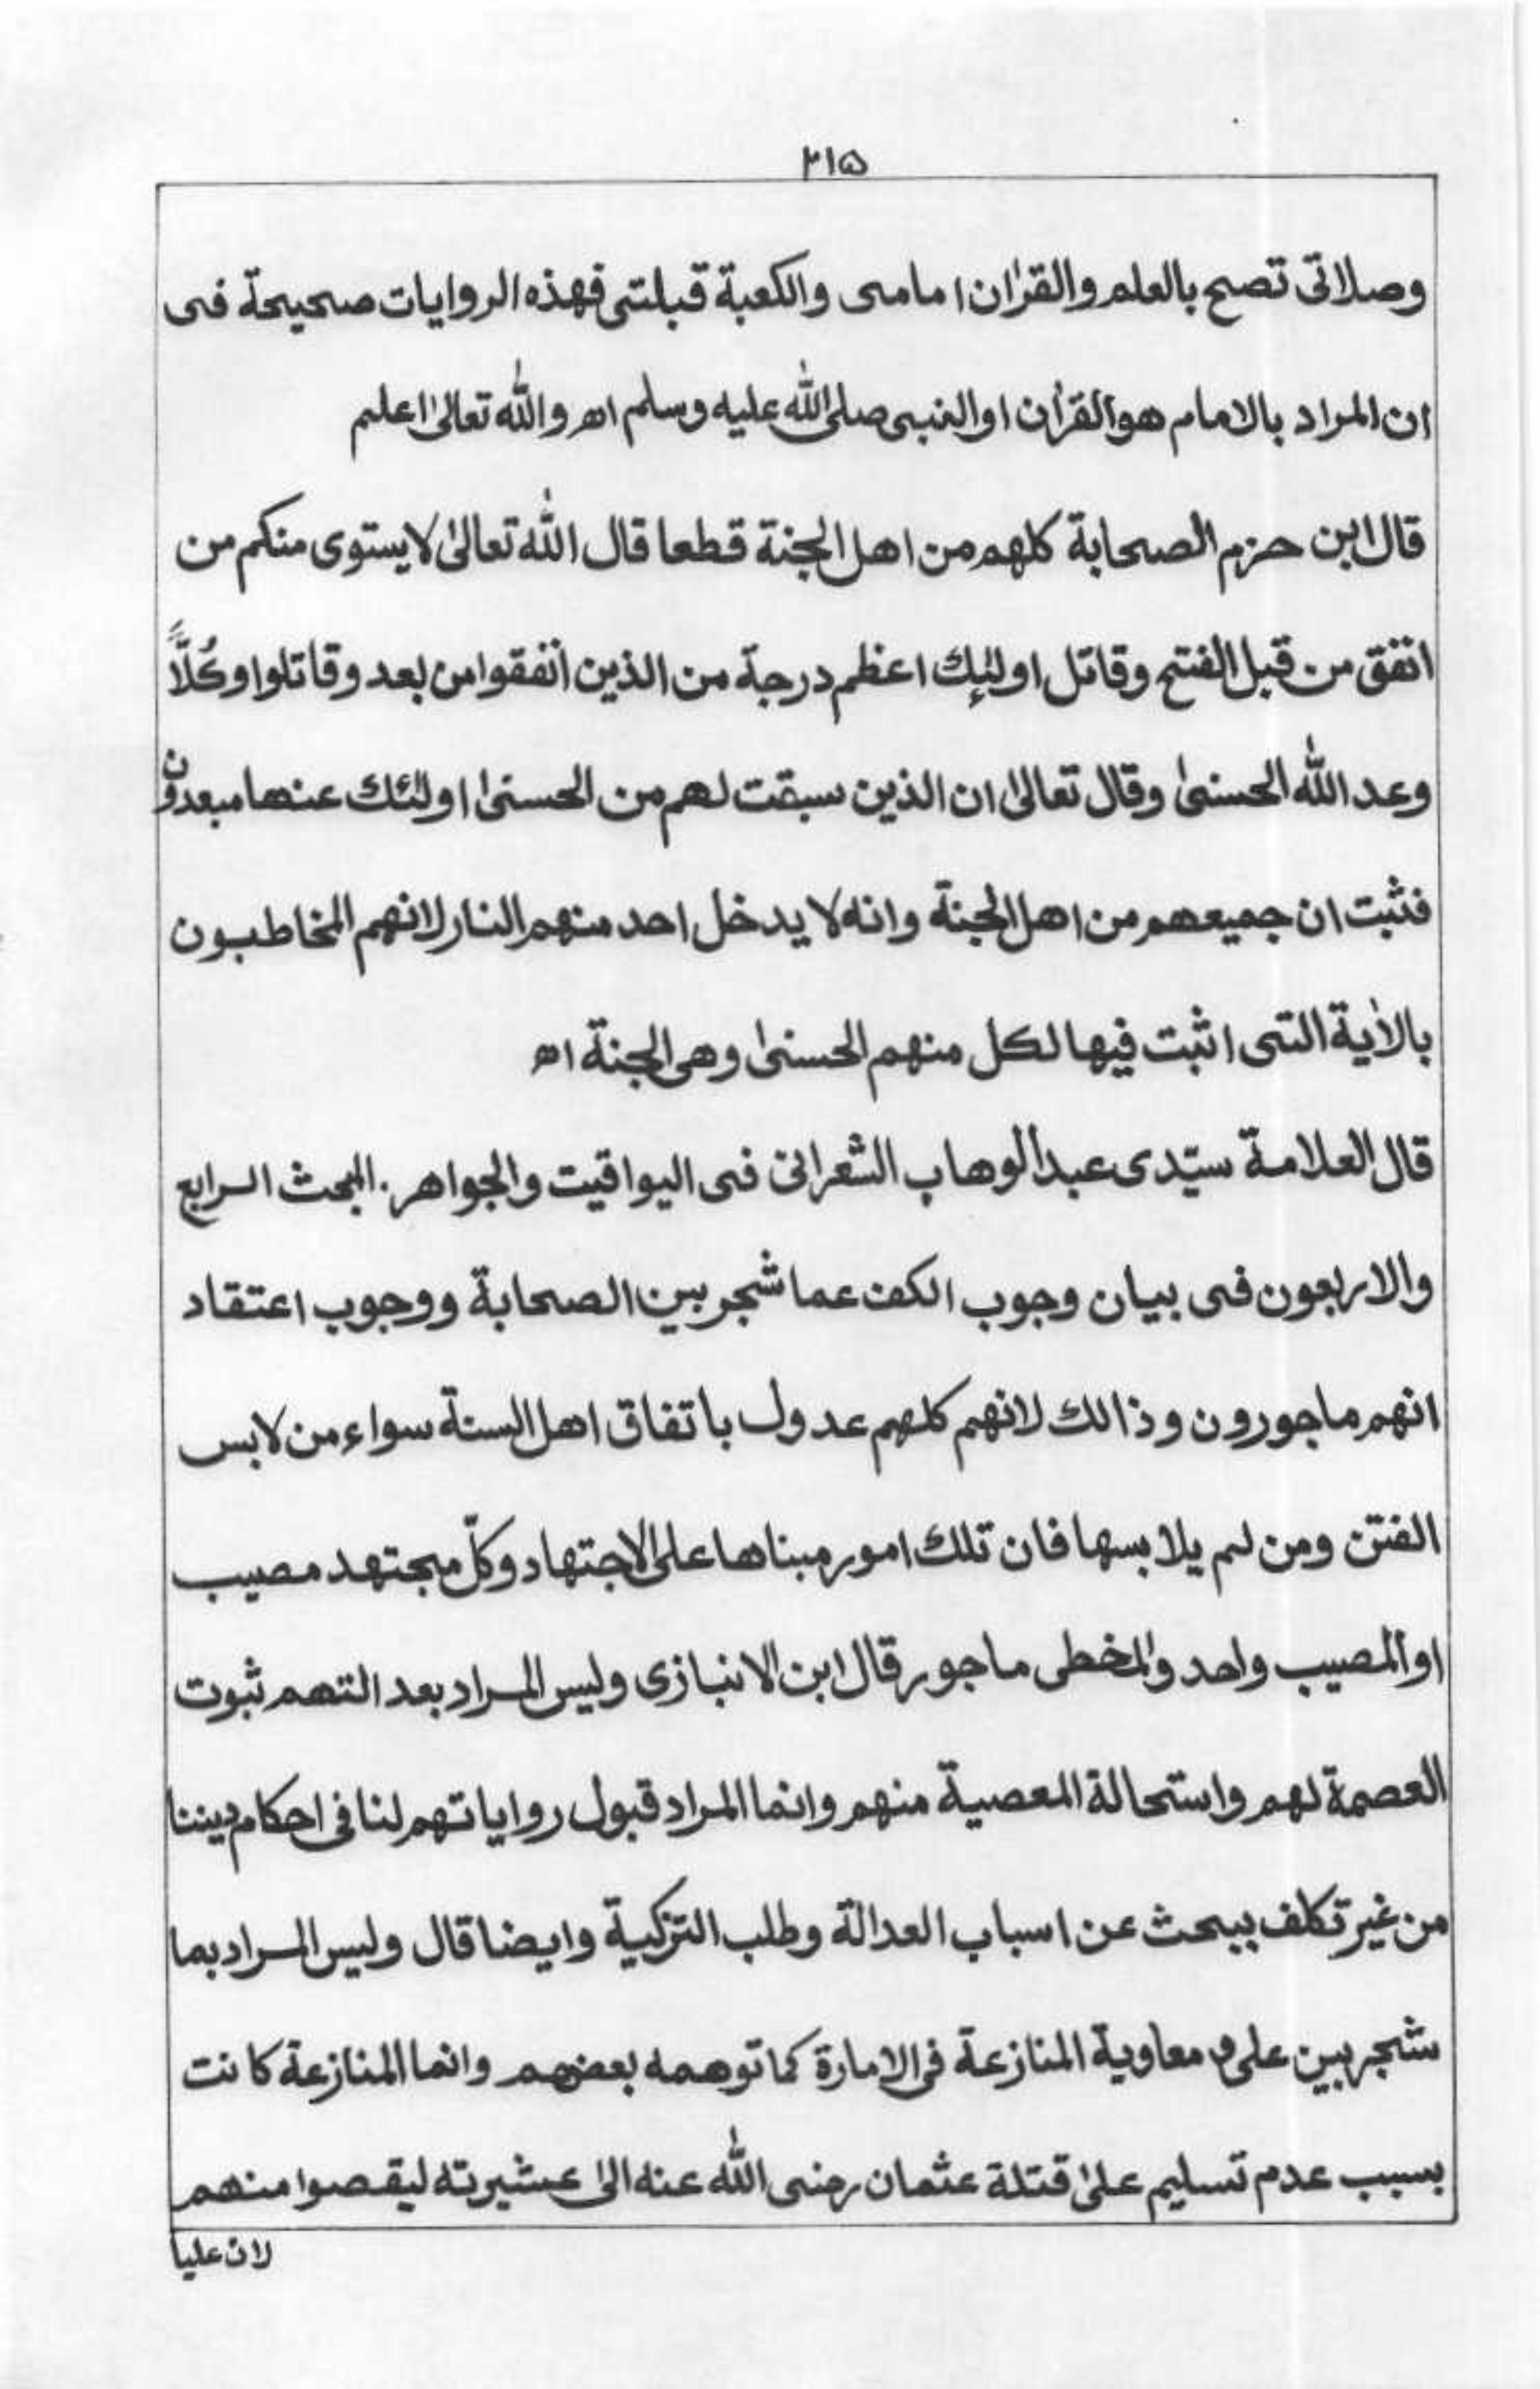 ٢١٥
وصلاتى تصح بالعلم والقرٰان امامى والكعبة قبلتى فهذه الروايات صحيحة فى
ان المراد بالامام هو القرأن او النبى صلى الله عليه وسلم اھ والله تعالىٰ اعلم
قال ابن حزم الصحابة كلهم من اهل الجنة قطعا قال الله تعالىٰ لا يستوى منكم من
انفق من قبل الفتح وقاتل اولئِك اعظم درجة من الذين أنفقوا من بعد وقاتلوا وكُلًّا
وعد الله الحسنىٰ وقال تعالىٰ ان الذين سبقت لهم من الحسنىٰ اولٰئك عنها مبعدون
فثبت ان جميعهم من اهل الجنة وانه لا يدخل احد منهم النار لانهم المخاطبون
بالاٰية التى اثبت فيها لكل منهم الحسنىٰ وهى الجنة اھ
قال العلامة سيّدى عبد الوهاب الشعرانى فى اليواقيت والجواهر. المبحث الرابع
والاربعون فى بيان وجوب الكف عما شجر بين الصحابة ووجوب اعتقاد
انهم ماجورون وذالك لانهم كلهم عدول باتفاق اهل السنة سواء من لابس
الفتن ومن لم يلابسها فان تلك امور مبناها على الاجتهاد وكلّ مجتهد مصيب
او المصيب واحد والمخطى ماجور قال ابن الانبازى وليس المراد بعد التهم ثبوت
العصمة لهم واستحالة المعصية منهم وانما المراد قبول رواياتهم لنا فى احكام ديننا
من غير تكلف ببحث عن اسباب العدالة وطلب التزكية وايضا قال وليس المراد بما
شجر بين على و معاوية المنازعة فى الامارة كما توهمه بعضهم وانما المنازعة كانت
بسبب عدم تسليم علىٰ قتلة عثمان رضى الله عنه الىٰ عشيرته ليقصوا منهم
لان عليا